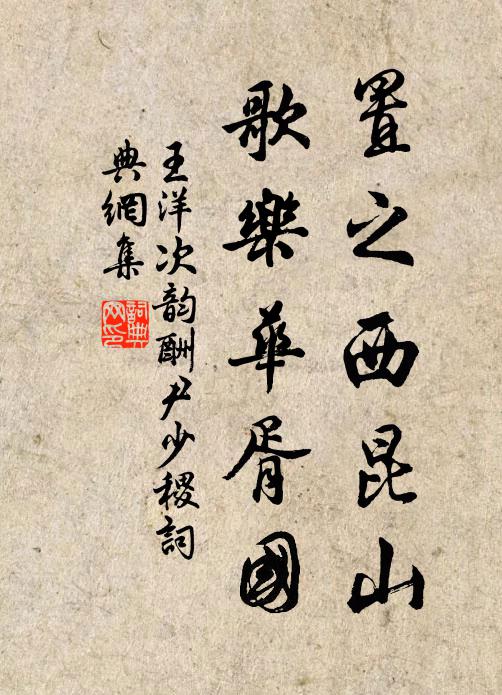 置之西昆山
歌樂華胥國
王洋次韵酬尹少稷詞
典網集
詞典網印